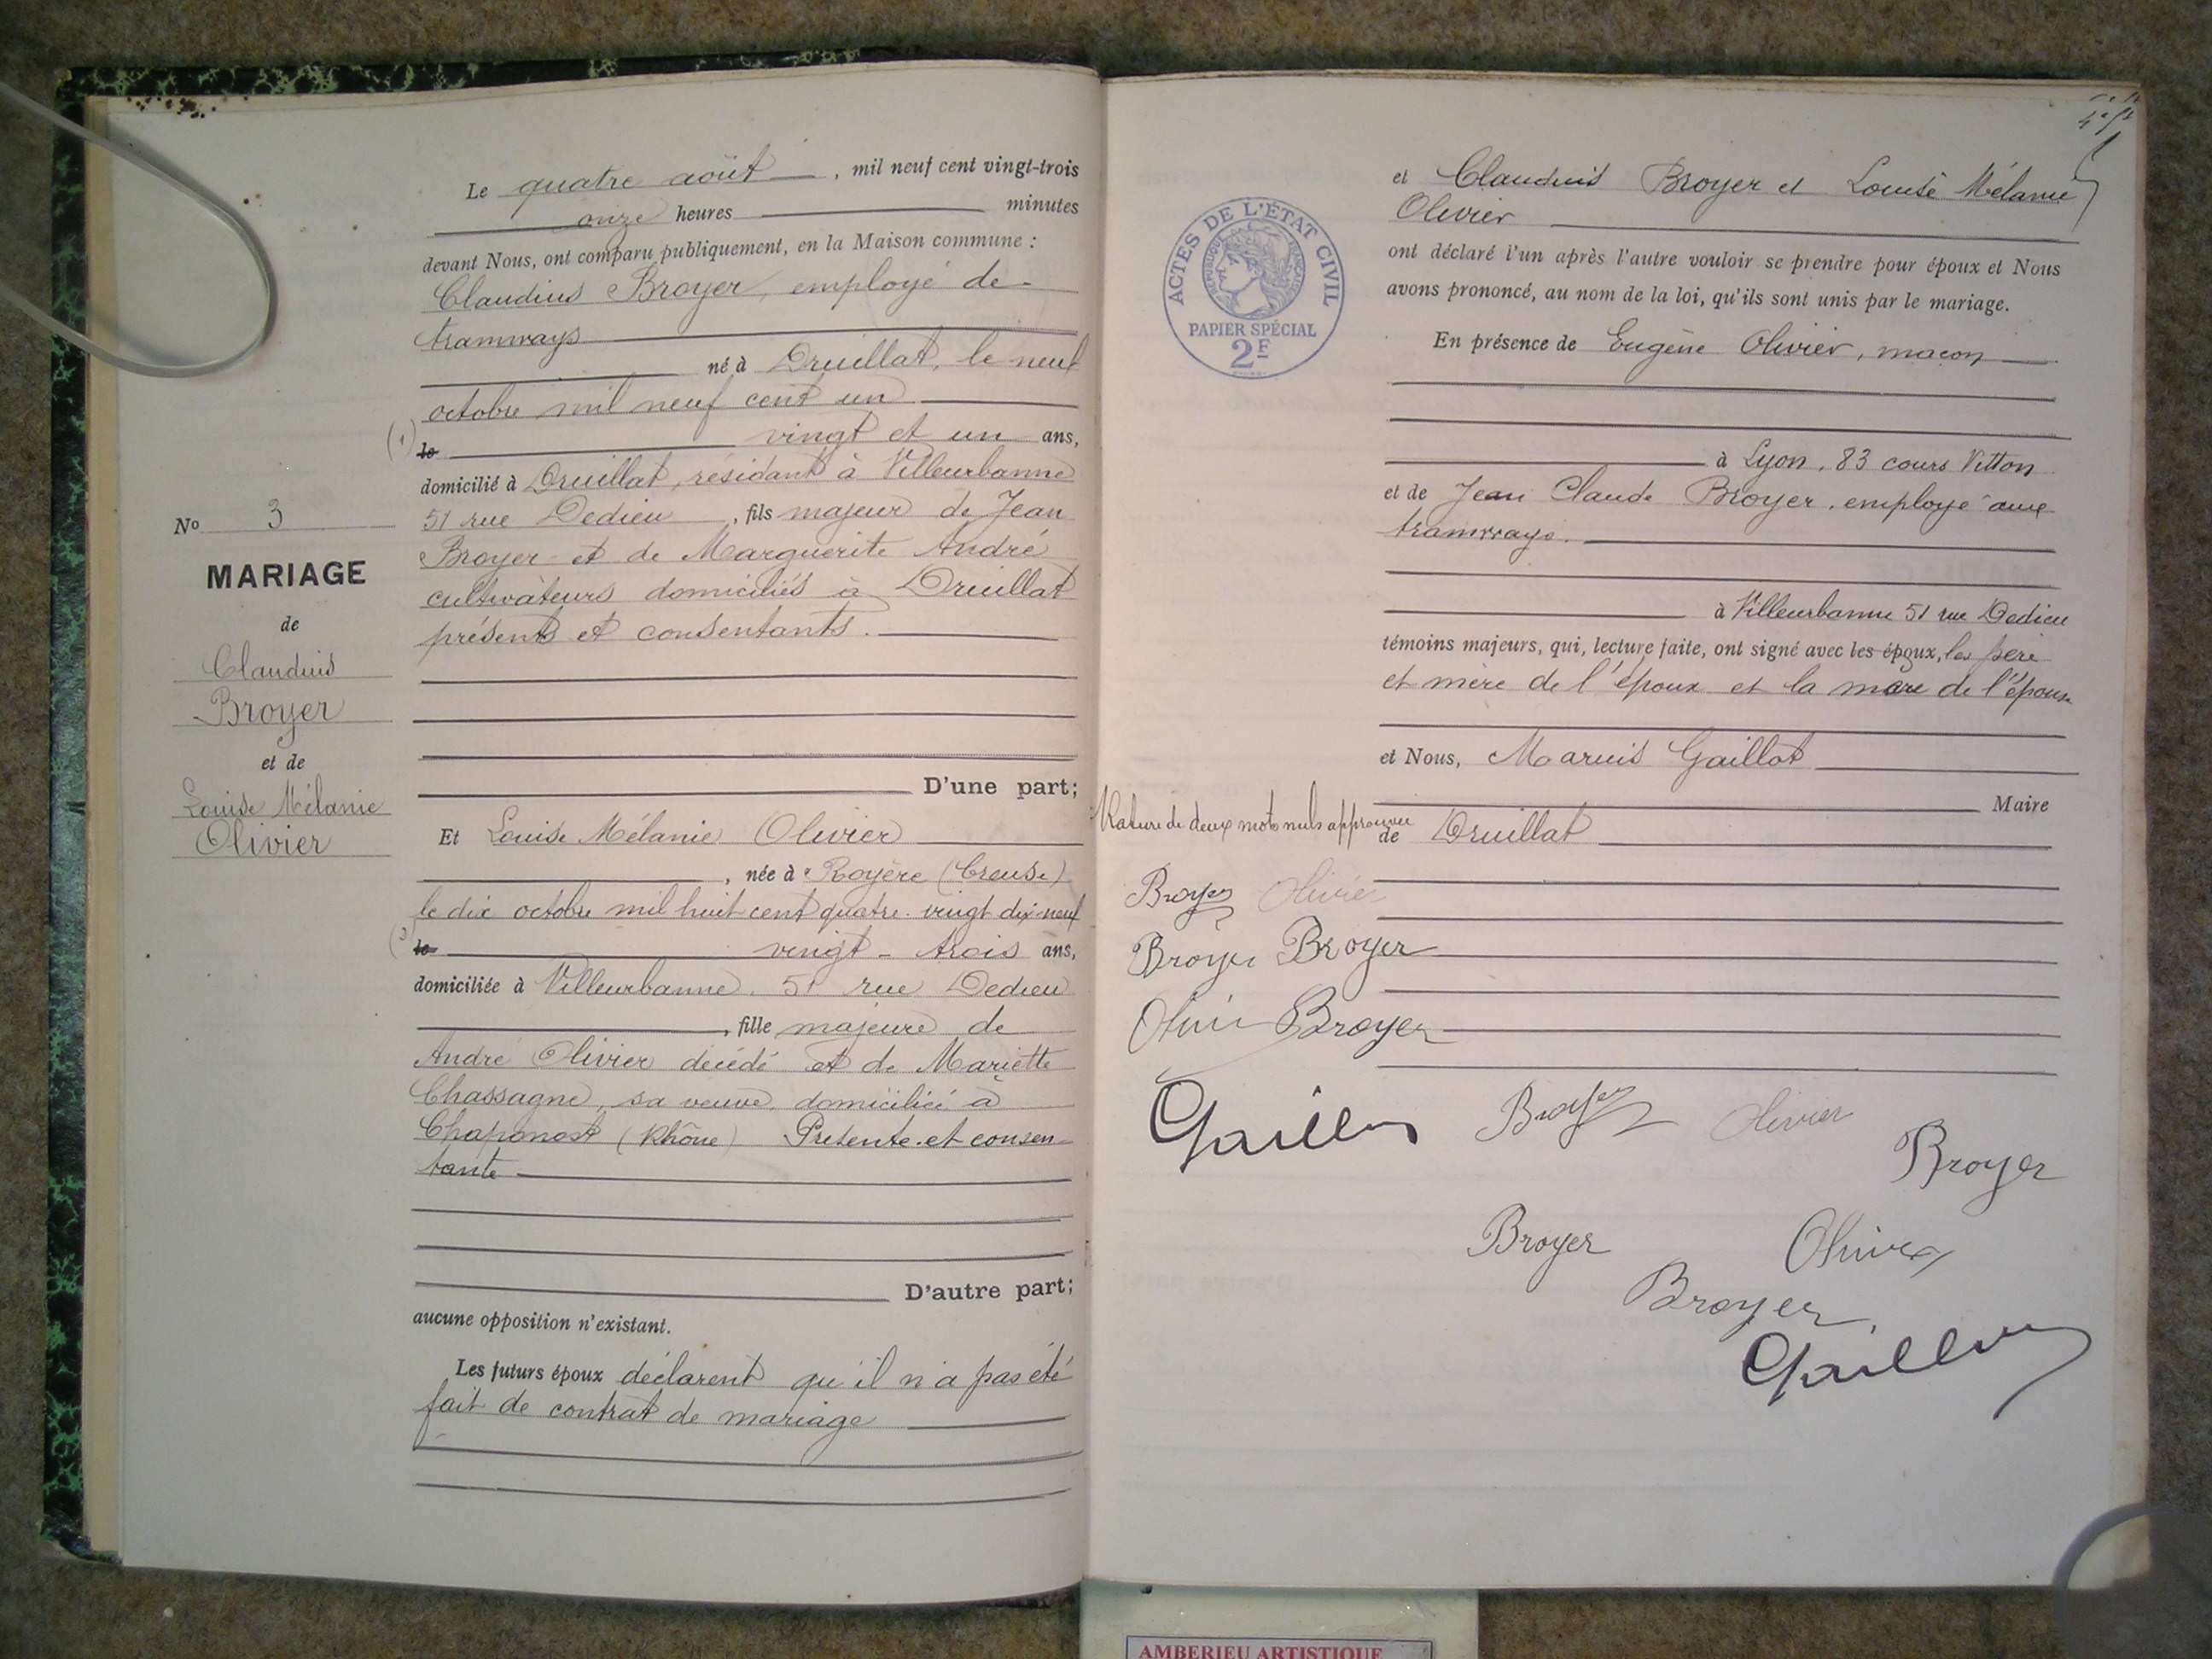 Le quatre août, mil neuf cent vingt-trois
onze heures minutes
devant Nous, ont comparu publiquement, en la Maison commune :
Claudius Broyer, employé de
tramways
né à Druillat, le neuf
octobre mil neuf cent un
(1) le vingt et un ans,
domicilié à Druillat, résidant à Villeurbanne
51 rue Dedieu, fils majeur de Jean
Broyer et de Marguerite André
cultivateurs domiciliés à Druillat
présents et consentants.
D'une part;
No 3
MARIAGE
de
Claudius
Broyer
et de
Louise Mélanie
Olivier
Et Louise Mélanie Olivier
, née à Royère (Creuse)
le dix octobre mil huit cent quatre-vingt dix-neuf
(2) le vingt-trois ans,
domiciliée à Villeurbanne. 51 rue Dedieu
, fille majeure de
André Olivier décédé et de Mariette
Chassagne, sa veuve, domiciliée à
Chaponost (Rhône) Présente et consen-
tante
D'autre part;
aucune opposition n'existant.
Les futurs époux déclarent qu'il n'a pas été
fait de contrat de mariage
et Claudius Broyer et Louise Mélanie
Olivier
ont déclaré l'un après l'autre vouloir se prendre pour époux et Nous
avons prononcé, au nom de la loi, qu'ils sont unis par le mariage.
ACTES DE L'ÉTAT CIVIL
RÉPUBLIQUE FRANÇAISE
PAPIER SPÉCIAL
2F
En présence de Eugène Olivier, maçon
à Lyon, 83 cours Vitton
et de Jean Claude Broyer, employé aux
tramways.
à Villeurbanne 51 rue Dedieu
témoins majeurs, qui, lecture faite, ont signé avec les époux, les père
et mère de l'époux et la mère de l'épouse
et Nous, Marius Gaillot
Maire
Rature de deux mots nuls approuvée
de Druillat
Broyer Olivier
Broyer Broyer
Olivier Broyer
Gaillot Broyer Olivier
Broyer
Broyer Olivier
Broyer
Gaillot
AMBERIEU ARTISTIQUE